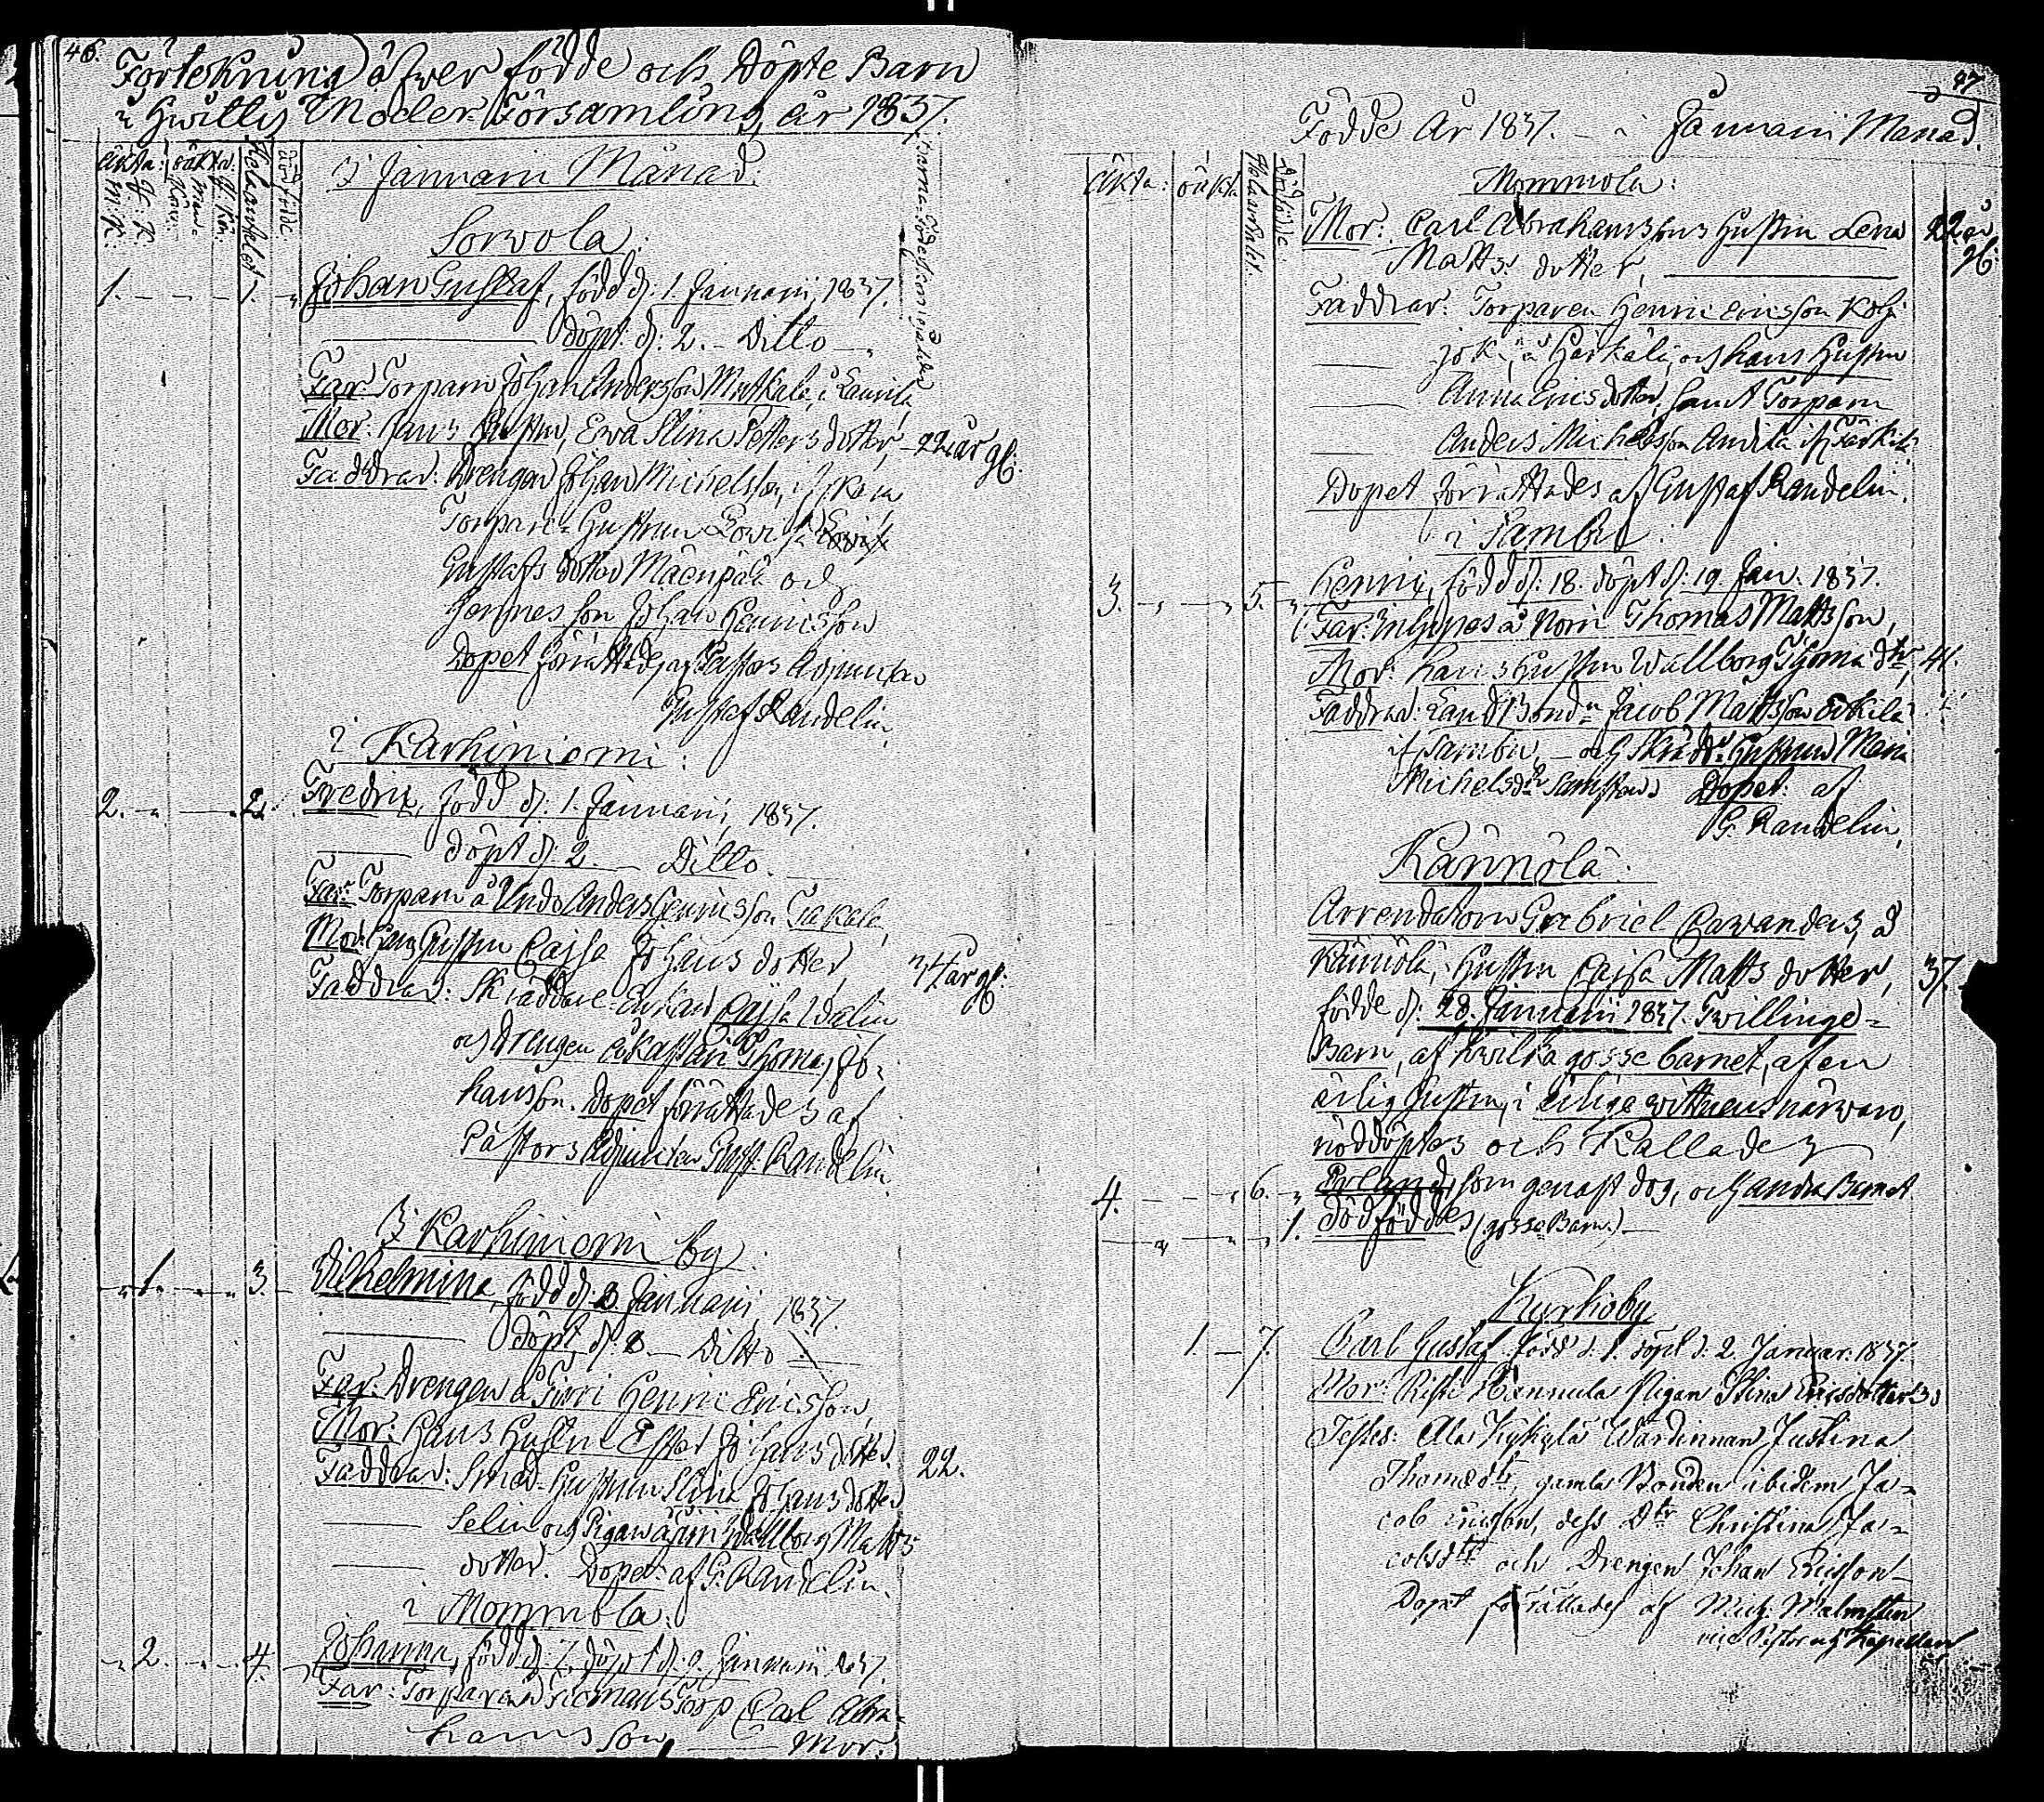 46.
Förteckning öfwer födde och Döpte Barn
i Hwittis Moder-Församling år 1837.
äkta: oäkta.
M: K: Q: K: Man-Kön: Q. Kön:
Hela antalet
dödfödde.
Barna-Föderskors ålder
I Januarii Månad:
Sorvola:
1. 1. Johan Gustaf, född d: 1. Januarii, 1837.
döpt d: 2. - Ditto -
Far Torparn Johan Andersson Matkala, i Lauvila,
Mor: hans Hustru, Ewa Stina Petters dotter, - 22 år gl:
Faddrar: Drengen Johan Michelsson,
Torpare-Hustrun Lovisa
Gustafs dotter Mäenpää och
Johan Henricsson
Dopet förrättades af Pastors Adjuncten
Gustaf Randelin.
i Karhiniemi:
2. 2. Fredric, född d: 1. Januarii, 1837.
döpt d: 2. - Ditto.
Far: Torparn å Undo Anders Henricsson Takala,
Mor: hans Hustru Cajsa Johans dotter, 34 år gl:
Faddrar: Skräddare-Enkan Cajsa Walin
och Drengen Thomas Jo-
hansson. Dopet förrättades af
Pastors Adjuncten Gust. Randelin.
I Karhiniemi by:
1. 3. Wilhelmina, född d: 8. Januarii, 1837.
döpt d: 8. - Ditto -
Far: Drengen å Sirri Henric Ericsson,
Mor: hans Hustru Ester Johans dotter. 22.
Faddrar: Smed-Hustrun Stina Johans dotter
Selin och Pigan Wallborg Matts
dotter. Dopet: af G. Randelin.
i Mommola:
2. 4. Johanna, född d: 7. döpt d: 9. Januarii 1837.
Far: Torparen Torp Carl Abra-
hamsson, Mor:
47
Födde År 1837. - i Januarii Månad.
äkta: oäkta
Hela antalet.
Dödfödde.
Mommola:
Mor: Carl Abrahamssons Hustru Lena 22 år
Matts dotter, gl:
Faddrar: Torparen Henric Ericsson Kohi-
joki, å Härkälä, och hans Hustru
Anna Ericsdotter, samt Torparn
Anders Michelsson Anttila
Dopet förrättades af Gustaf Randelin.
i Sambu:
3. 5. Henric, född d: 18. döpt d: 19 Jan. 1837.
Far: Inhyses å Norri Thomas Mattsson,
Mor: hans Hustru Wallborg Thoma dtr, 41.
Faddrar: Land Bondn Jacob Mattsson
i Sambu, - och Skrädd: Hustrun Maria
Michelsdtr Dopet: af
G. Randelin.
Kännölä:
Arrendatorn Gabriel Cawanders, å
Kännölä, Hustru Cajsa Matts dotter, 37.
födde d: 28. Januarii 1837. Twillinge-
Barn, af hwilka gosse barnet, af en
ärlig Hustru, i ärlige wittnens närwaro,
nöddöptes och Kallades
4. 6. Erland, som genast dog, och andra Barnet
1. dödföddes (gosse Barn.) -
Kyrkoby
1. 7. Carl Gustaf född d. 1. döpt d. 2. Januar: 1837
Mor: Risti Hannula Pigan Stina Ericsdotter 23
Testes: Ala Wärdinnan Justina
Thomædtr, gamla Bonden ibidem Ja-
cob Ericsson, dess Dtr Christina Ja-
cobsdtr och Drengen Johan Ericsson -
Dopet förrättades af Mich: Malmsten
vice Pastor och Kapellan